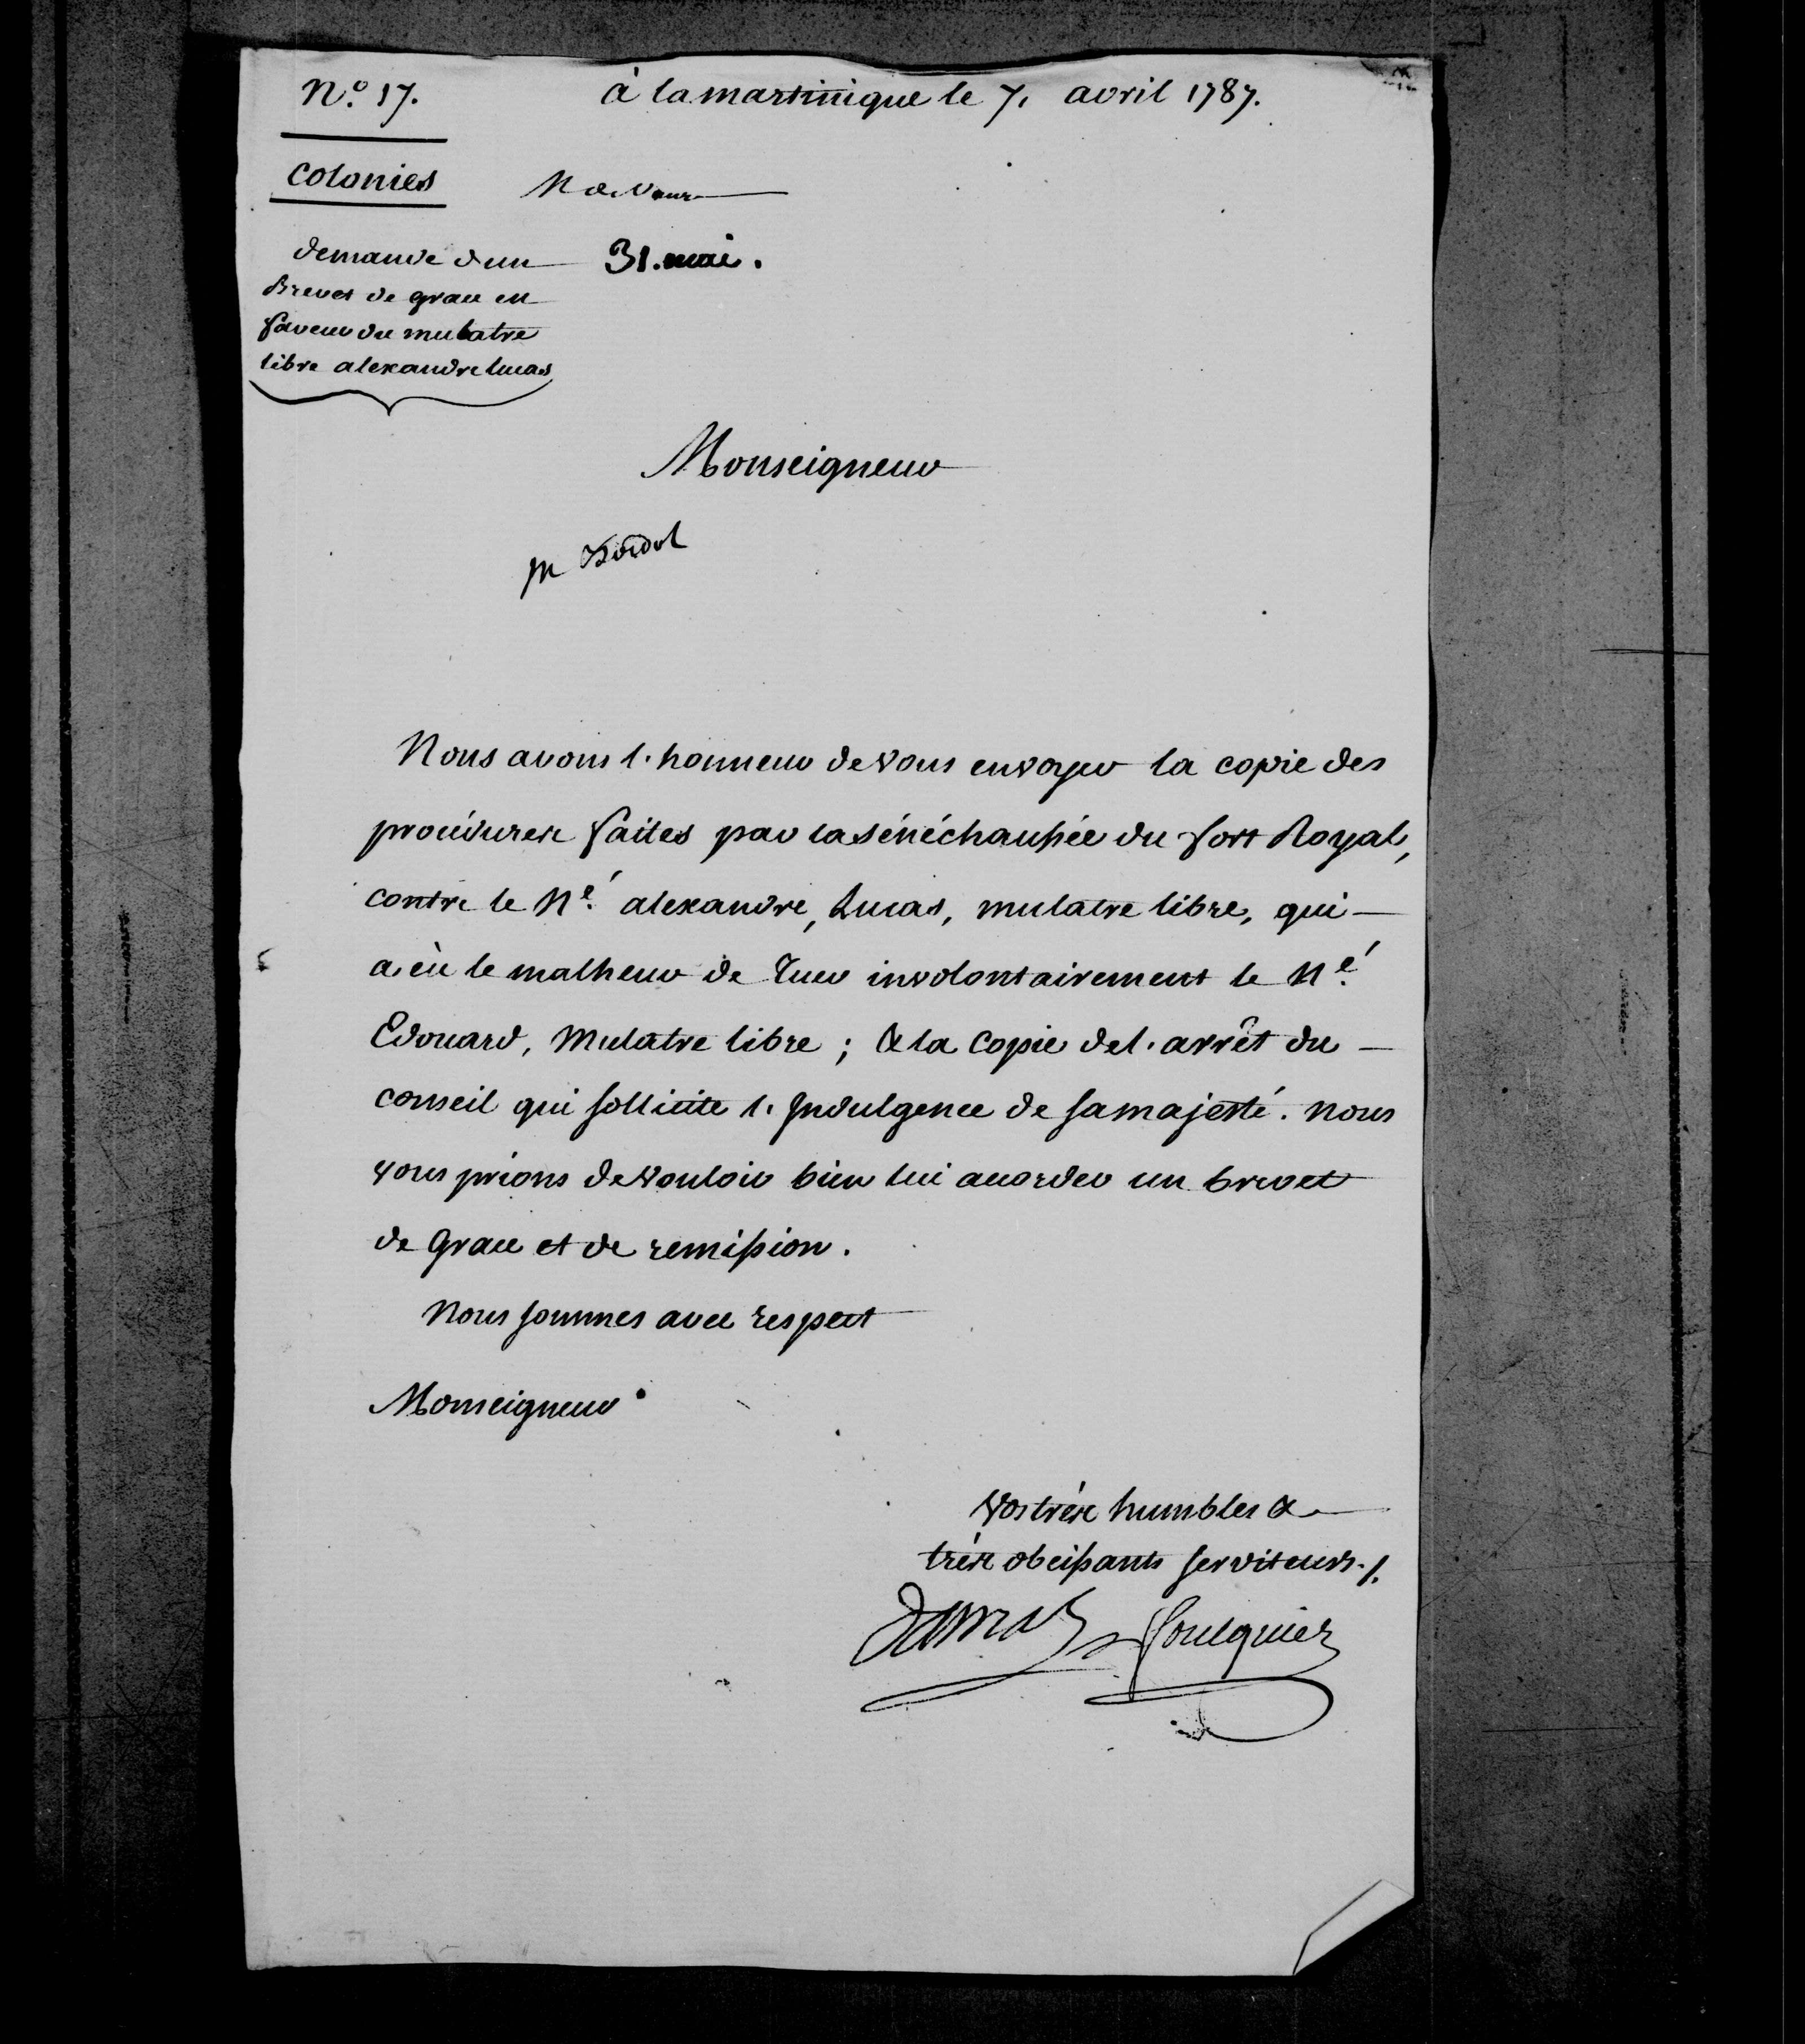 N.o 17.
à la martinique le 7. avril 1787.
Colonies
31. mai.
demande d'un
Brevet de grace en
faveur du mulatre
libre alexandre lucas
Monseigneur
M
Nous avons l'honneur de vous envoyer la copie des
procédures faites par la sénéchaussée du fort Royal,
contre le Né. alexandre, Lucas, mulatre libre, qui
a eù le malheur de Tuer involontairement le Né.
Edouard, Mulatre libre ; & la Copie de l'arrêt du
conseil qui sollicite l'Indulgence de sa majesté. nous
vous prions de vouloir bien lui accorder un brevet
de Grace et de remission.
Nous sommes avec respect
Monseigneur
Vos très humbles &
très obeissants serviteurs ./.
Damas Foulquier